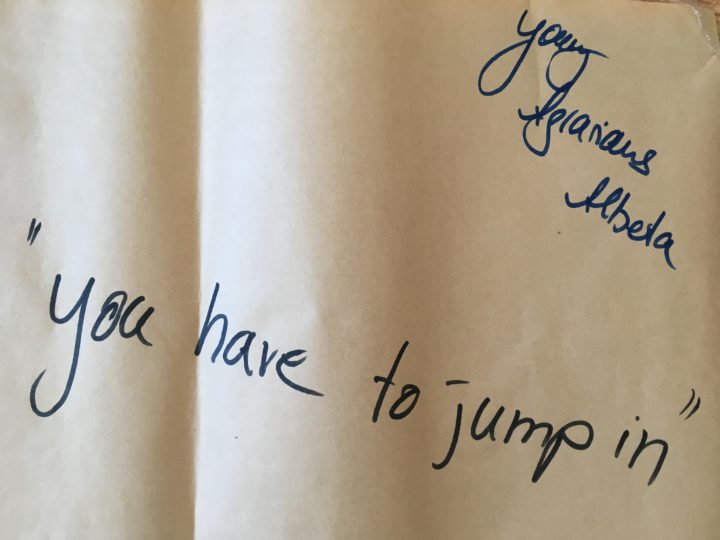 Young
Agrarians
Alberta
"you have to jump in"